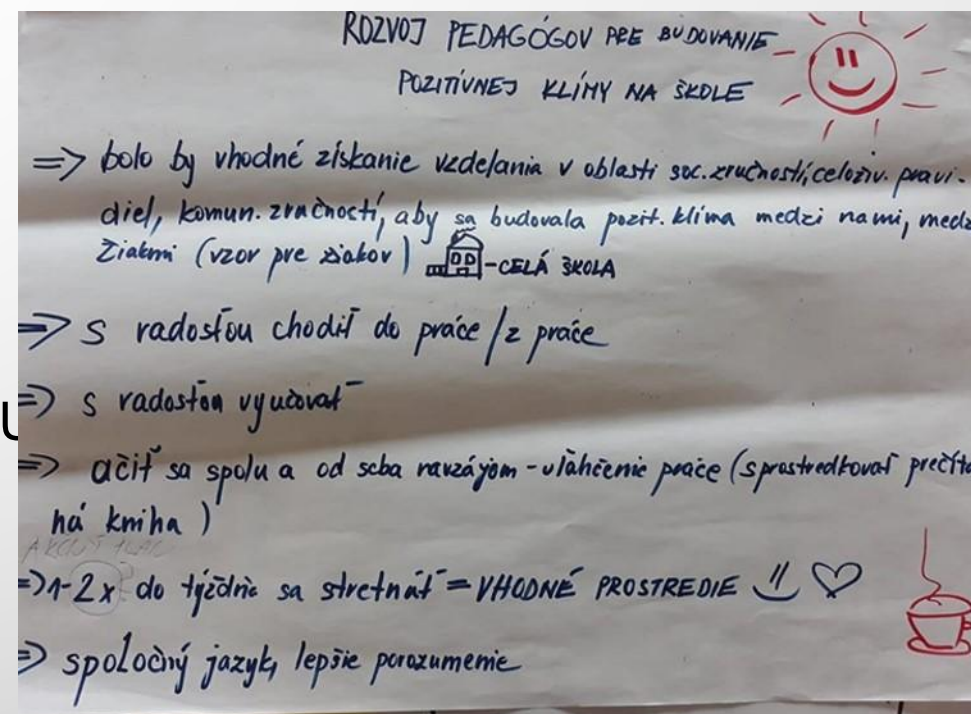 ROZVOJ PEDAGÓGOV PRE BUDOVANIE
POZITÍVNEJ KLÍMY NA ŠKOLE
=> bolo by vhodné získanie vzdelania v oblasti soc. zručností, celoživ. pravi-
diel, komun. zručností, aby sa budovala pozit. klíma medzi nami, medzi
žiakmi (vzor pre žiakov) - CELÁ ŠKOLA
=> s radosťou chodiť do práce / z práce
=> s radosťou vyučovať
=> učiť sa spolu a od seba navzájom - uľahčenie práce (sprostredkovať prečíta
ná kniha)
=> 1-2x do týždňa sa stretnúť = VHODNÉ PROSTREDIE
=> spoločný jazyk, lepšie porozumenie